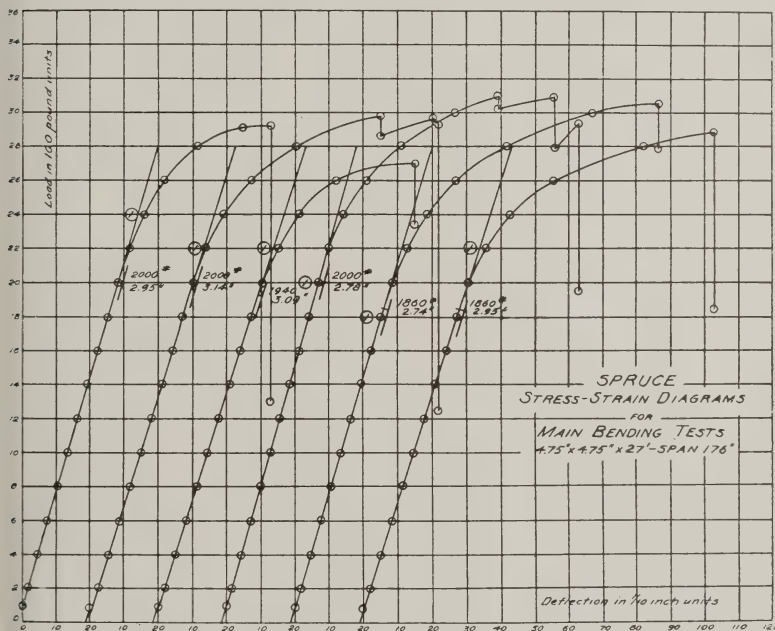 36
34
32
30
28
26
24
22
20
18
16
14
12
10
8
6
4
2
0
Load in 100 pound units
2000#
2.95"
2000#
3.14"
1940
3.09"
2000#
2.78"
1860#
2.74"
1860#
2.95"
SPRUCE
STRESS-STRAIN DIAGRAMS
FOR
MAIN BENDING TESTS
4.75"x4.75"x27'-SPAN 176"
Deflection in 1/10 inch units
0 10 20 10 20 10 20 10 20 10 20 10 20 30 40 50 60 70 80 90 100 110